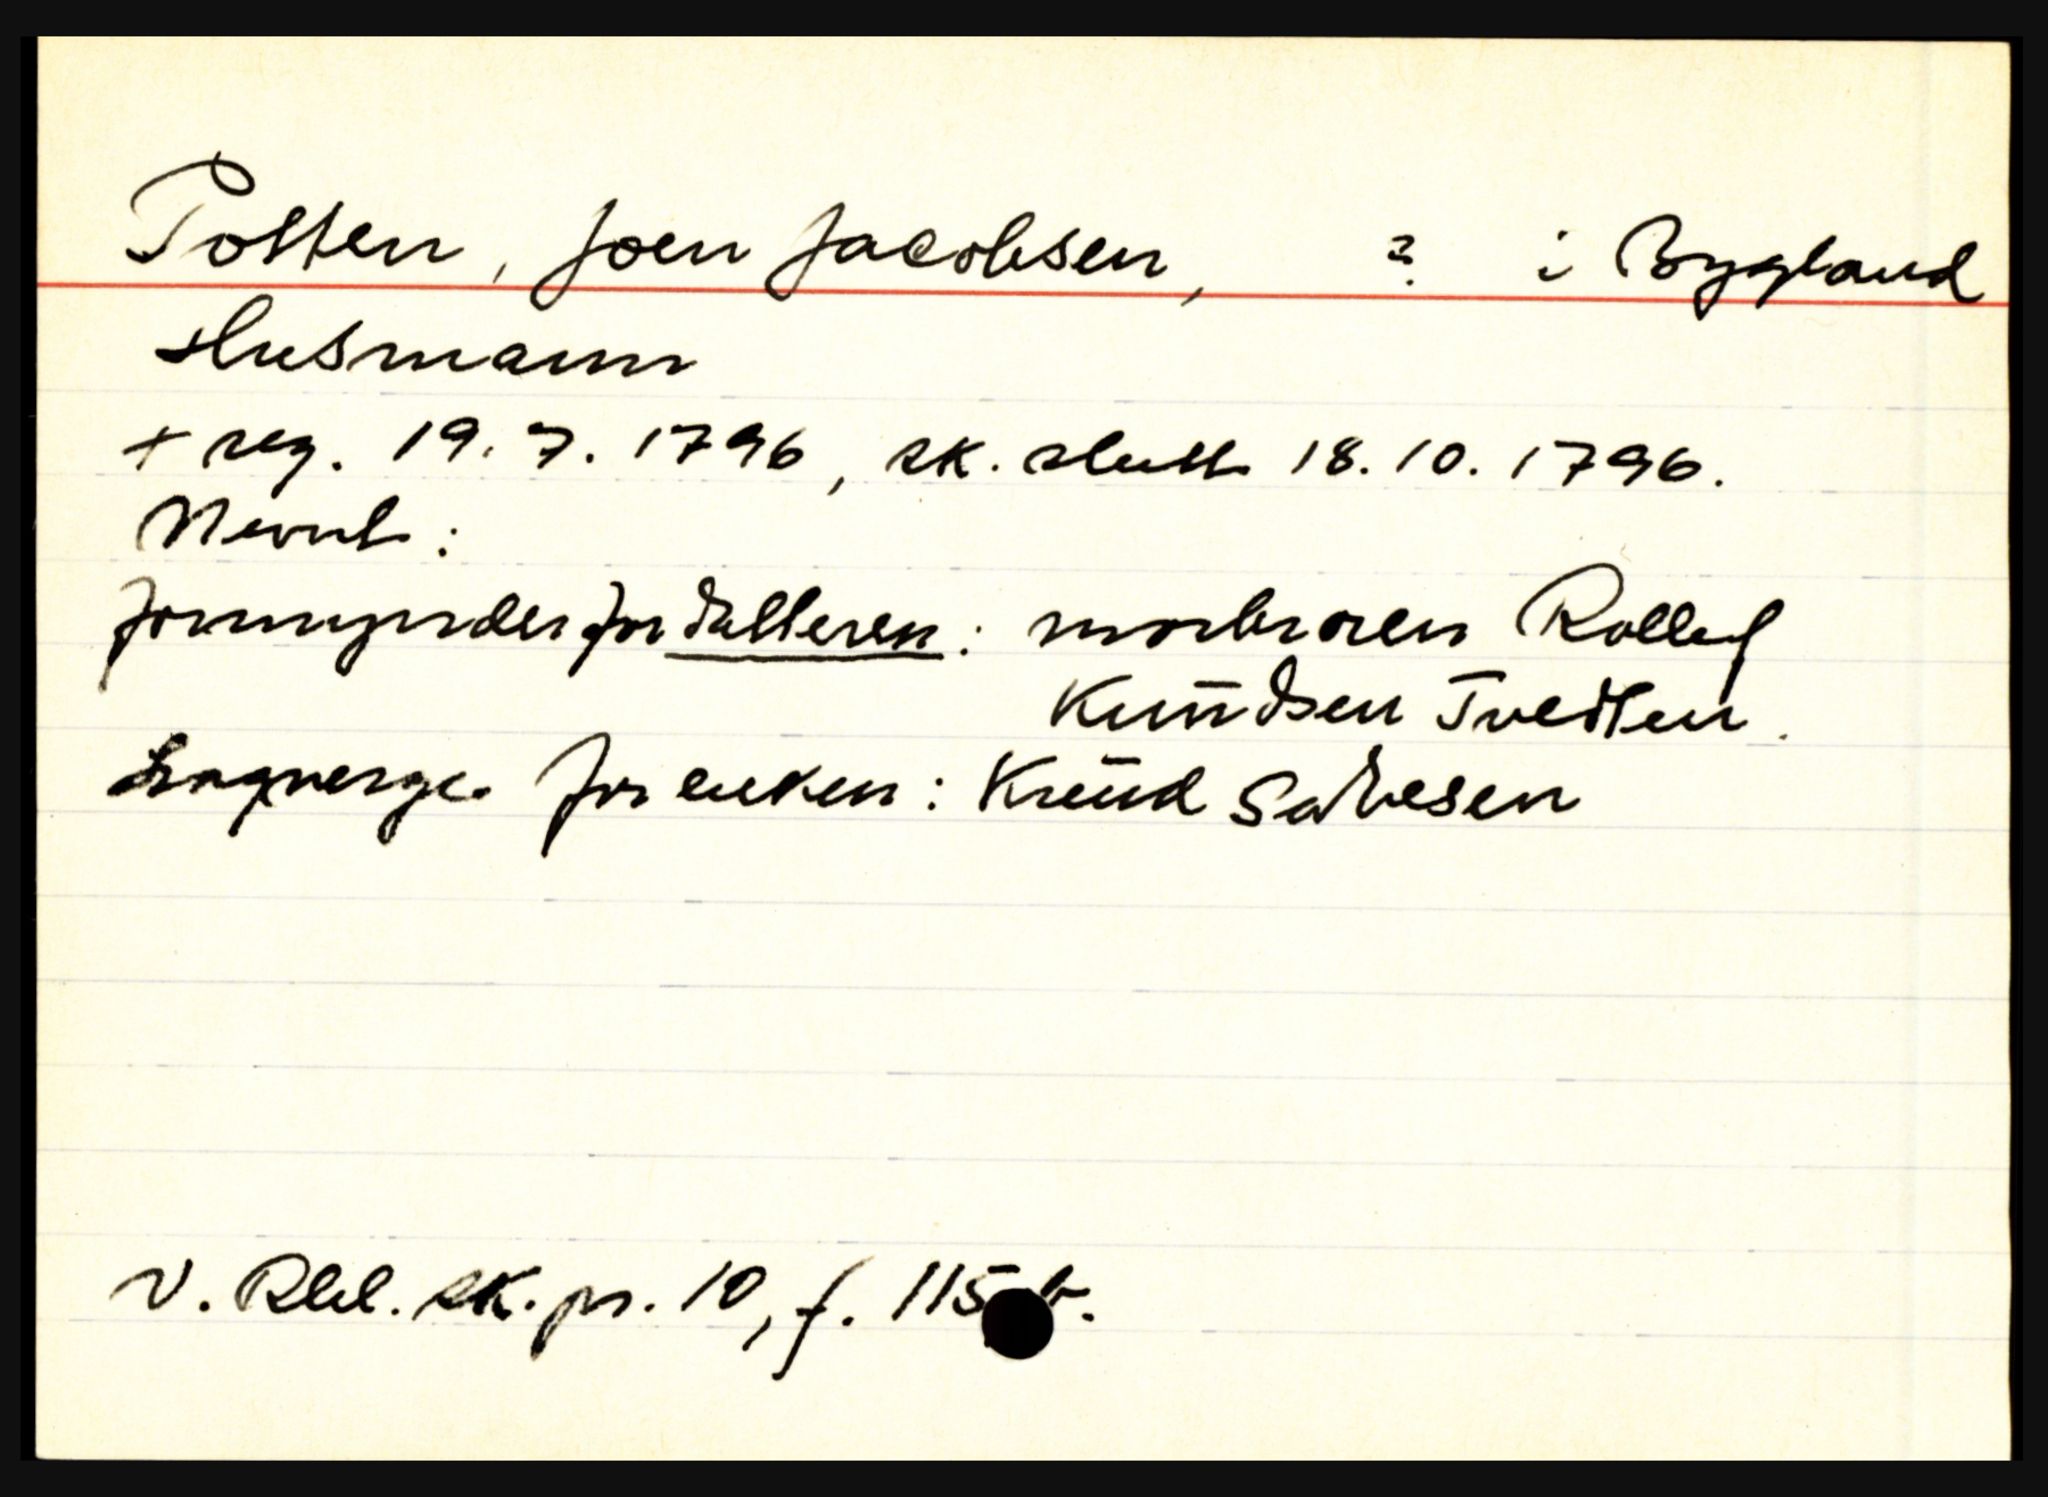 Posten, Joen Jacobsen, ? i Bygland
Husmann
+ reg. 19.7.1796, sk. slutt 18.10.1796.
Nevnt:
formynder for datteren: morbroren Rollef
Knüdsen Tvedten.
Lagverge for enken: Knüd Salvesen
V. Rbl. sk. pr. 10, f. 115 b.